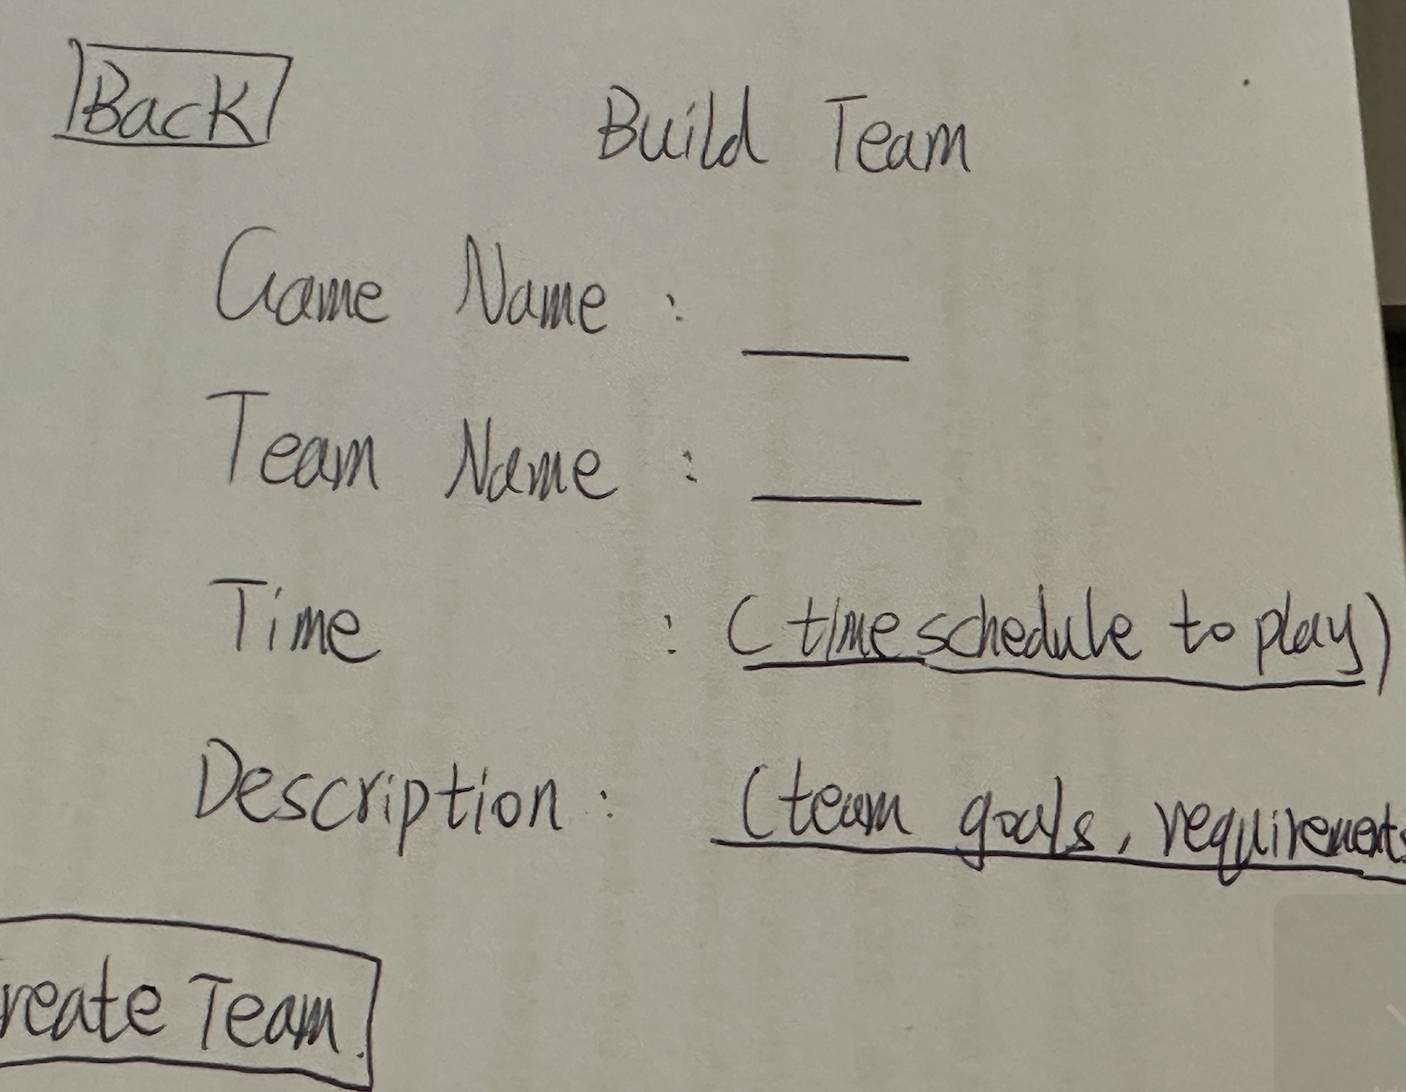 Back
Build Team
Game Name :
Team Name :
Time : (time schedule to play)
Description : (team goals, requirements
reate Team.